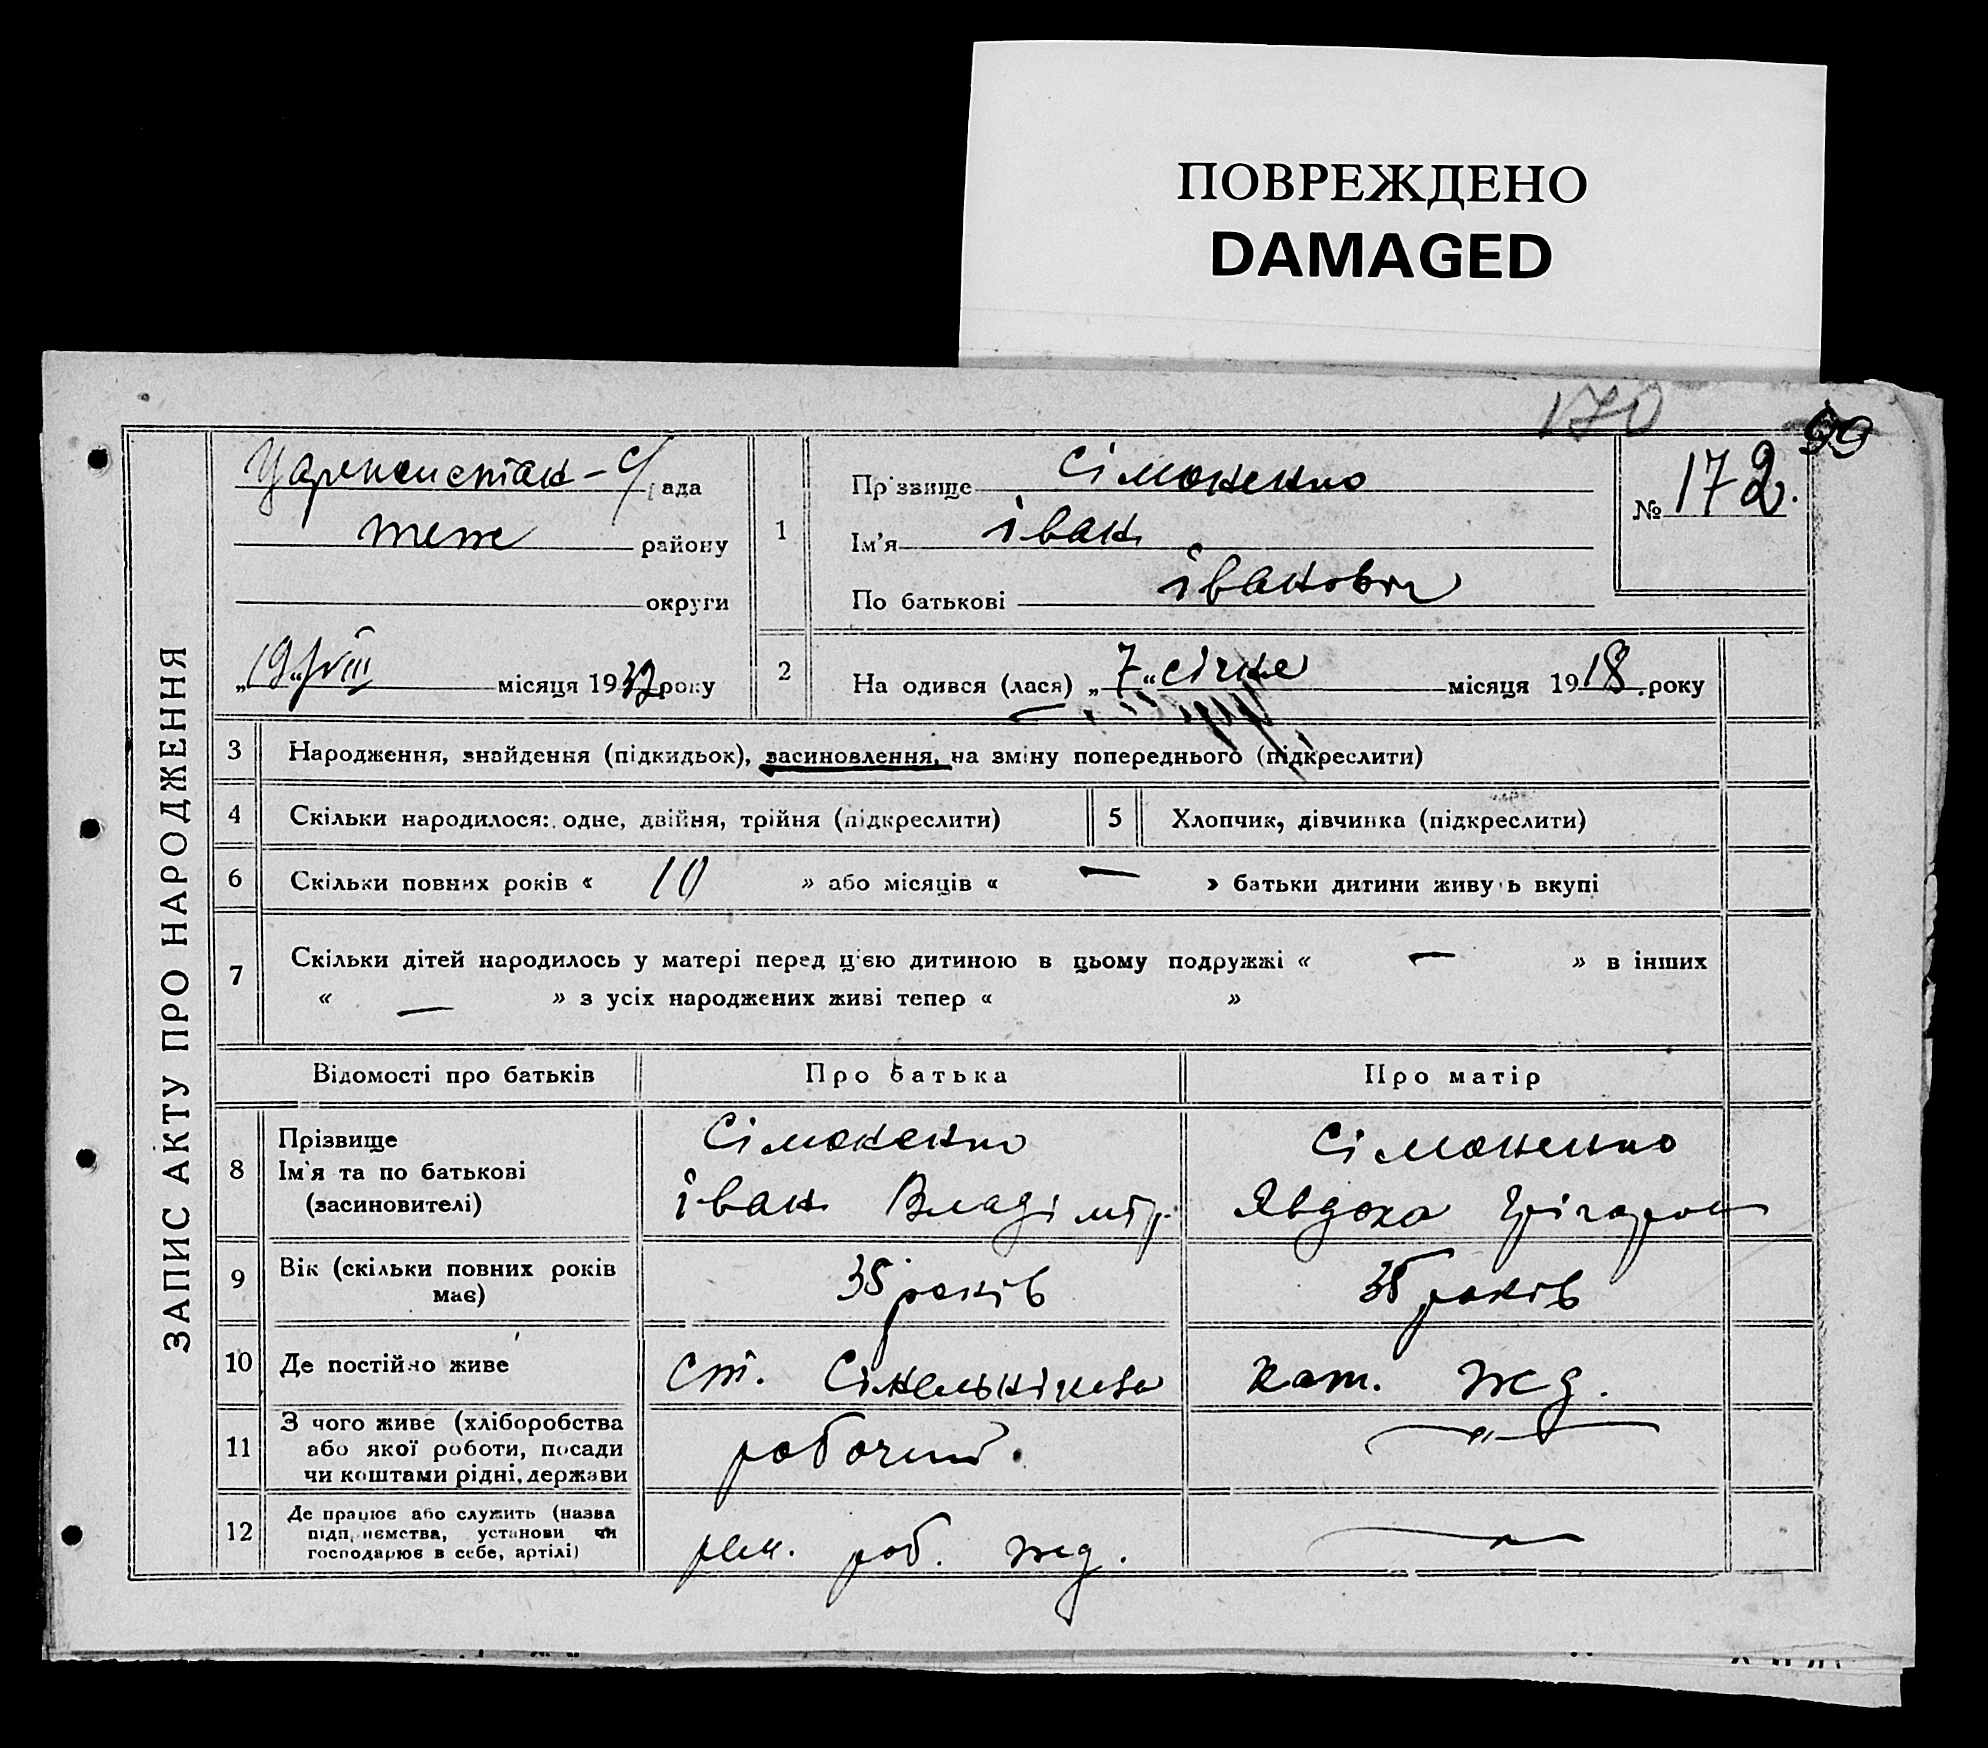 ПОВРЕЖДЕНО
DAMAGED
170
99
ЗАПИС АКТУ ПРО НАРОДЖЕННЯ
рада
теж району
округи
„19“ VIII місяця 1932 року
1
Прізвище Сімоненко
Ім'я Іван
По батькові Іванович
№ 172.
2 На одився (лася) „7“ січня місяця 1918 року
3 Народження, знайдення (підкидьок), засиновлення, на зміну попереднього (підкреслити)
4 Скільки народилося: одне, двійня, трійня (підкреслити) 5 Хлопчик, дівчинка (підкреслити)
6 Скільки повних років « 10 » або місяців « — » батьки дитини живуть вкупі
7 Скільки дітей народилось у матері перед ц'єю дитиною в цьому подружжі « — » в інших
« — » з усіх народжених живі тепер « »
Відомості про батьків Про батька Про матір
8 Прізвище
Ім'я та по батькові
(засиновителі)
Сімоненко
Іван Владімір.
Сімоненко
Явдоха
9 Вік (скільки повних років
має)
35 років
35 років
10 Де постійно живе
ст. Сінельнікове
жд.
11 З чого живе (хліборобства
або якої роботи, посади
чи коштами рідні, держави
робочий.
—"—
12 Де працює або служить (назва
підприємства, установи чи
господарює в себе, артілі)
рем. роб. жд.
—